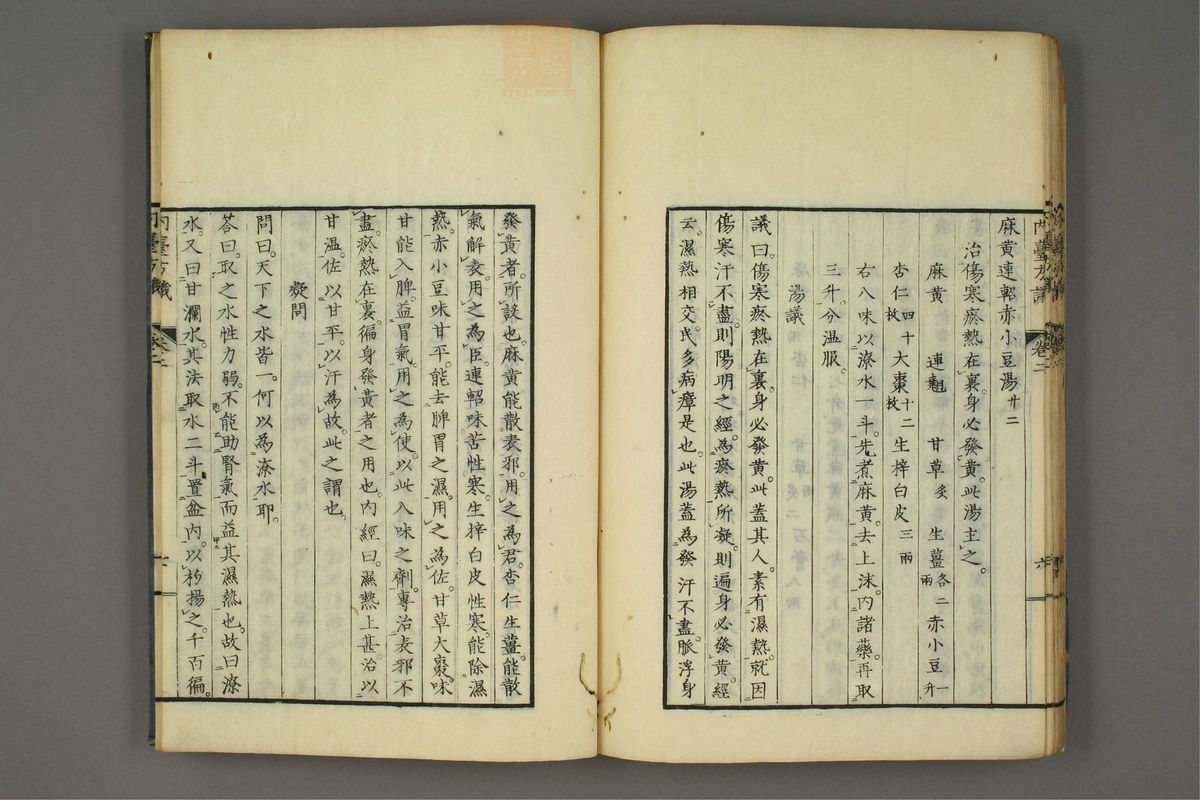 麻黄連軺赤小豆湯廿二
治傷寒瘀熱在裏。身必發黄。此湯主之。
麻黄 連翹 甘草炙 生薑各二兩 赤小豆一升
杏仁四十枚 大棗十二枚 生梓白皮三兩
右八味以潦水一斗。先煮麻黄。去上沫。内諸藥。再取
三升。分温服。
湯議
議曰。傷寒瘀熱在裏。身必發黄。此蓋其人。素有濕熱。就因
傷寒汗不盡。則陽明之經。為瘀熱所凝。則遍身必發黄。經
云。濕熱相交。民多病癉是也。此湯蓋為發汗不盡。脈浮身
發黄者。所談也。麻黄能散表邪。用之為君。杏仁生薑。能散
氣解表。用之為臣。連軺味苦性寒。生梓白皮性寒。能除濕
熱。赤小豆味甘平。能去脾胃之濕。用之為佐。甘草大棗。味
甘能入脾。益胃氣。用之為使。以此入味之劑。專治表邪不
盡。瘀熱在裏。徧身發黄者之用也。内經曰。濕熱上甚。治以
甘温。佐以甘平。以汗為故。此之謂也。
疑問
問曰。天下之水皆一。何以為潦水耶。
答曰。取之水性力弱。不能助腎氣而益其濕熱也。故曰潦
水。又曰甘瀾水。其法取水二斗。置盆内。以杓揚之。千百徧。
内臺方議 卷二 六